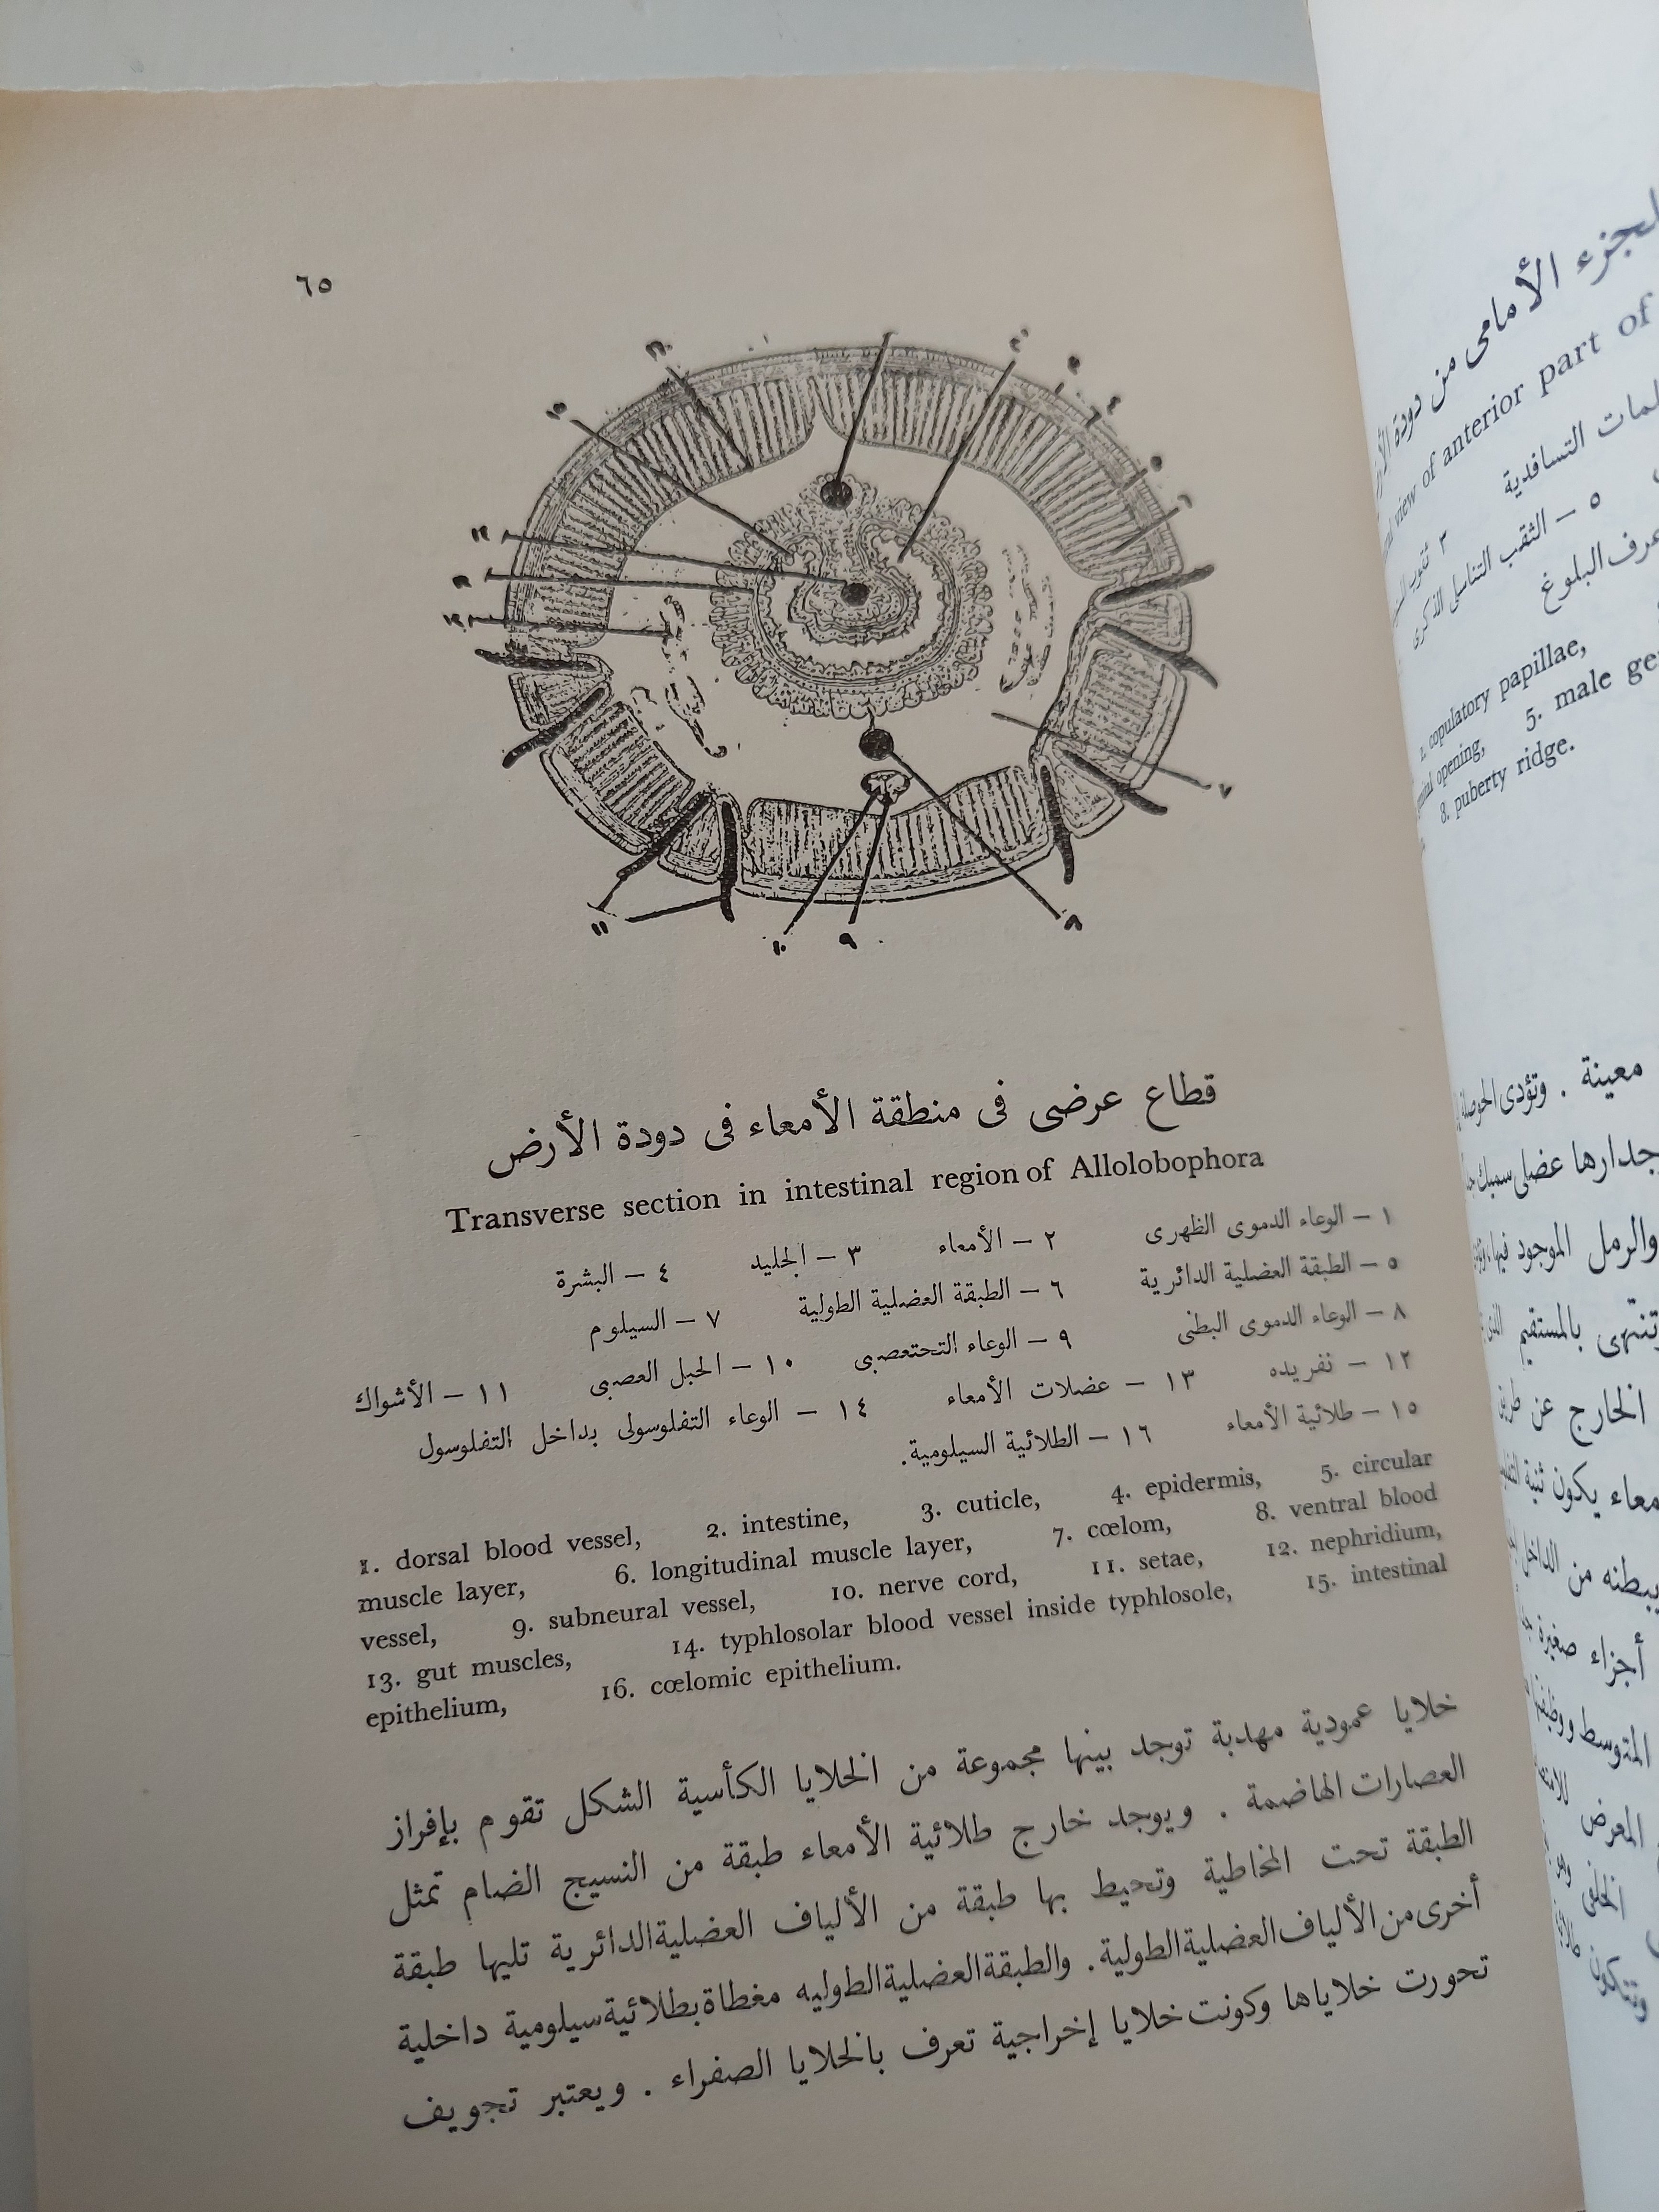 ٦٥
قطاع عرضى فى منطقة الأمعاء فى دودة الأرض
Transverse section in intestinal region of Allolobophora
١ – الوعاء الدموى الظهرى ٢ – الأمعاء ٣ – الجليد ٤ – البشرة
٥ – الطبقة العضلية الدائرية ٦ – الطبقة العضلية الطولية ٧ – السيلوم
٨ – الوعاء الدموى البطنى ٩ – الوعاء التحتعصبى ١٠ – الحبل العصبى ١١ – الأشواك
١٢ – نفريده ١٣ – عضلات الأمعاء ١٤ – الوعاء التفلوسولى بداخل التفلوسول
١٥ – طلائية الأمعاء ١٦ – الطلائية السيلومية.
1. dorsal blood vessel, 2. intestine, 3. cuticle, 4. epidermis, 5. circular
muscle layer, 6. longitudinal muscle layer, 7. cœlom, 8. ventral blood
vessel, 9. subneural vessel, 10. nerve cord, 11. setae, 12. nephridium,
13. gut muscles, 14. typhlosolar blood vessel inside typhlosole, 15. intestinal
epithelium, 16. cœlomic epithelium.
خلايا عمودية مهدبة توجد بينها مجموعة من الخلايا الكأسية الشكل تقوم بإفراز
العصارات الهاضمة . ويوجد خارج طلائية الأمعاء طبقة من النسيج الضام تمثل
الطبقة تحت المخاطية وتحيط بها طبقة من الألياف العضلية الدائرية تليها طبقة
أخرى من الألياف العضلية الطولية . والطبقة العضلية الطوليه مغطاة بطلائية سيلومية داخلية
تحورت خلاياها وكونت خلايا إخراجية تعرف بالخلايا الصفراء . ويعتبر تجويف
الجزء الأمامى من دودة
view of anterior part of
التسافدية
٥ – الثقب التناسلى الذكرى
عرف البلوغ
2. copulatory papillae,
opening, 5. male
8. puberty ridge.
معينة . وتؤدى الحوصلة
جدارها عضلى سميك
والرمل الموجود فيها
وتنتهى بالمستقيم
الخارج عن طريق
يكون ثنية
من الداخل
أجزاء صغيرة
المتوسط ووظيفتها
المعرض
الخلفى
وتتكون